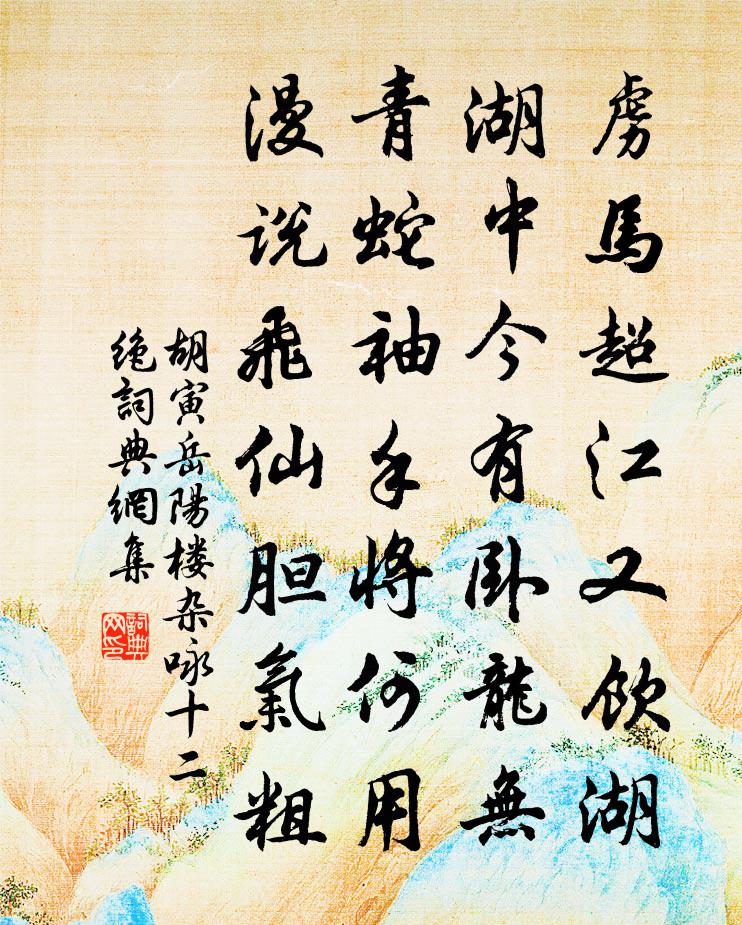 虏馬超江又饮湖
湖中今有卧龍無
青蛇袖手將何用
漫说飛仙胆氣粗
胡寅岳陽楼杂咏十二
绝詞典網集
詞典
网印